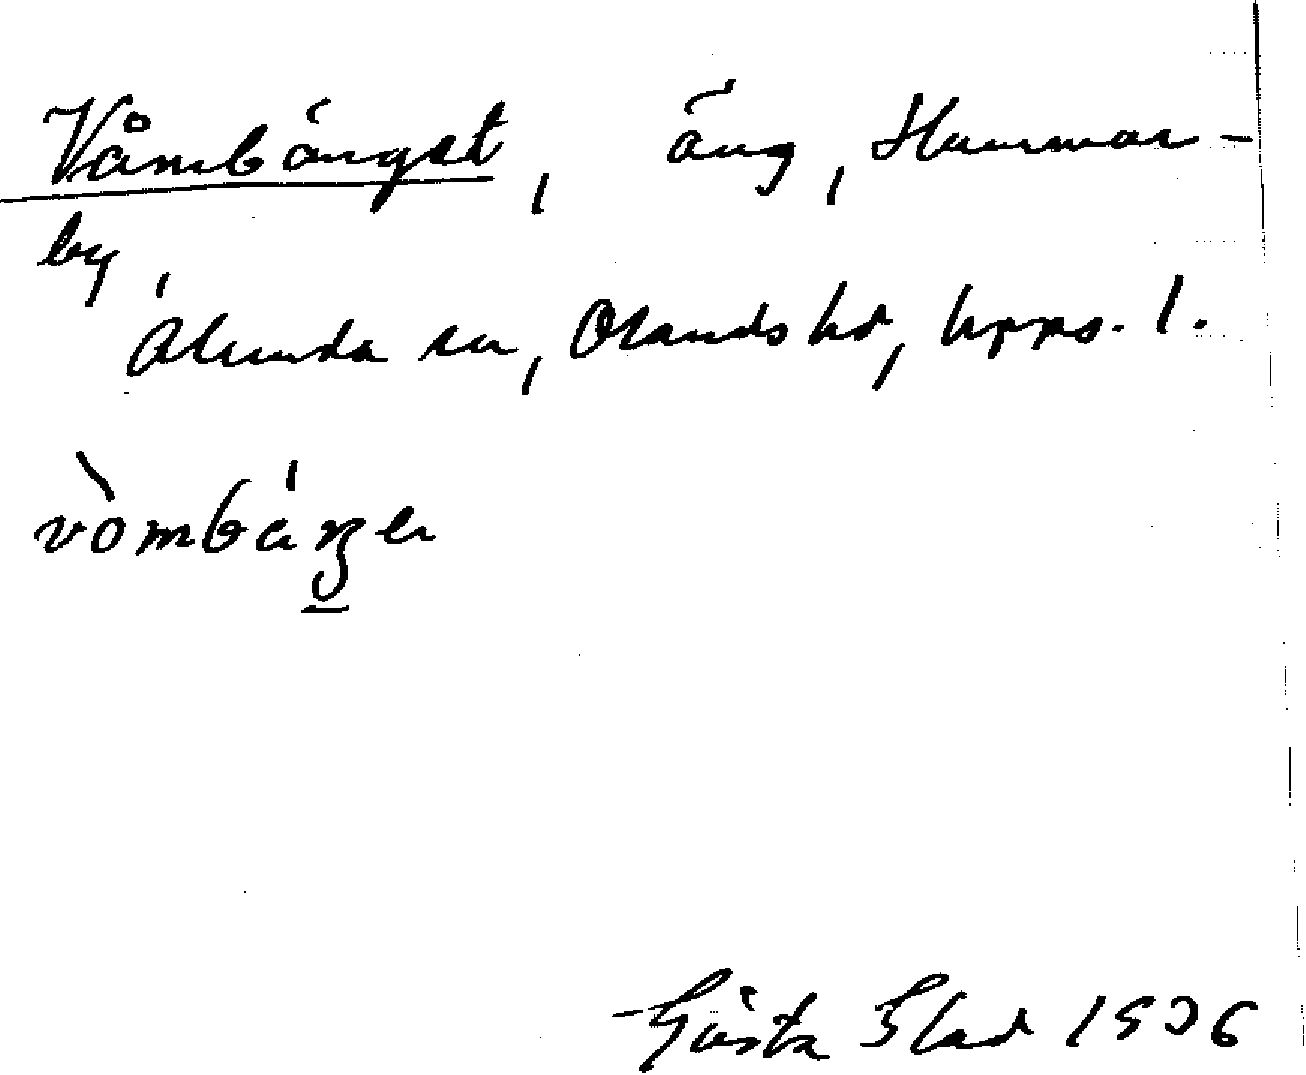 Våmbängst, äng, Hammar-
by,
Alunda sn, Olands hd, Upps. l.
Gösta 1936